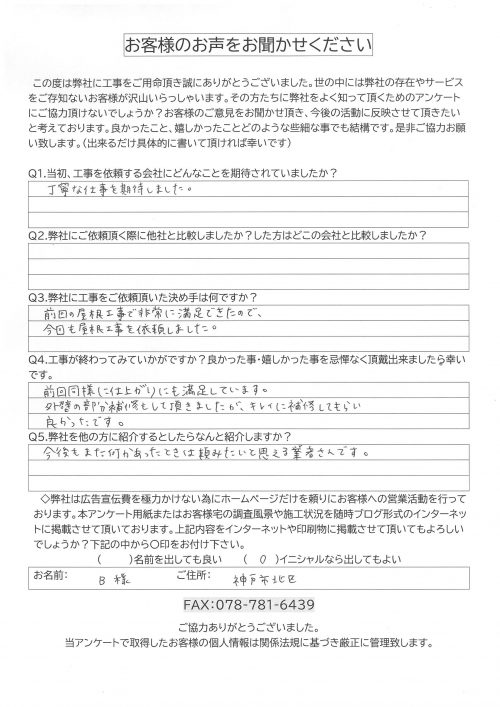 お客様のお声をお聞かせください
この度は弊社に工事をご用命頂き誠にありがとうございました。世の中には弊社の存在やサービス
をご存知ないお客様が沢山いらっしゃいます。その方たちに弊社をよく知って頂くためのアンケート
にご協力頂けないでしょうか?お客様のご意見をお聞かせ頂き、今後の活動に反映させて頂きたい
と考えております。良かったこと、嬉しかったことどのような些細な事でも結構です。是非ご協力お願
い致します。(出来るだけ具体的に書いて頂ければ幸いです)
Q1.当初、工事を依頼する会社にどんなことを期待されていましたか?
丁寧な仕事を期待しました。
Q2.弊社にご依頼頂く際に他社と比較しましたか?した方はどこの会社と比較しましたか?
Q3.弊社に工事をご依頼頂いた決め手は何ですか?
前回の屋根工事で非常に満足できたので、
今回も屋根工事を依頼しました。
Q4.工事が終わってみていかがですか?良かった事・嬉しかった事を忌憚なく頂戴出来ましたら幸い
です。
前回同様に仕上がりにも満足しています。
外壁の部分補修もして頂きましたが、キレイに補修してもらい
良かったです。
Q5.弊社を他の方に紹介するとしたらなんと紹介しますか?
今後もまた何かあったときは頼みたいと思える業者さんです。
◇弊社は広告宣伝費を極力かけない為にホームページだけを頼りにお客様への営業活動を行って
おります。本アンケート用紙またはお客様宅の調査風景や施工状況を随時ブログ形式のインターネッ
トに掲載させて頂いております。上記内容をインターネットや印刷物に掲載させて頂いてもよろしい
でしょうか?下記の中から〇印をお付け下さい。
( )名前を出しても良い ( 〇 )イニシャルなら出してもよい
お名前: B 様 ご住所: 神戸市北区
FAX:078-781-6439
ご協力ありがとうございました。
当アンケートで取得したお客様の個人情報は関係法規に基づき厳正に管理致します。